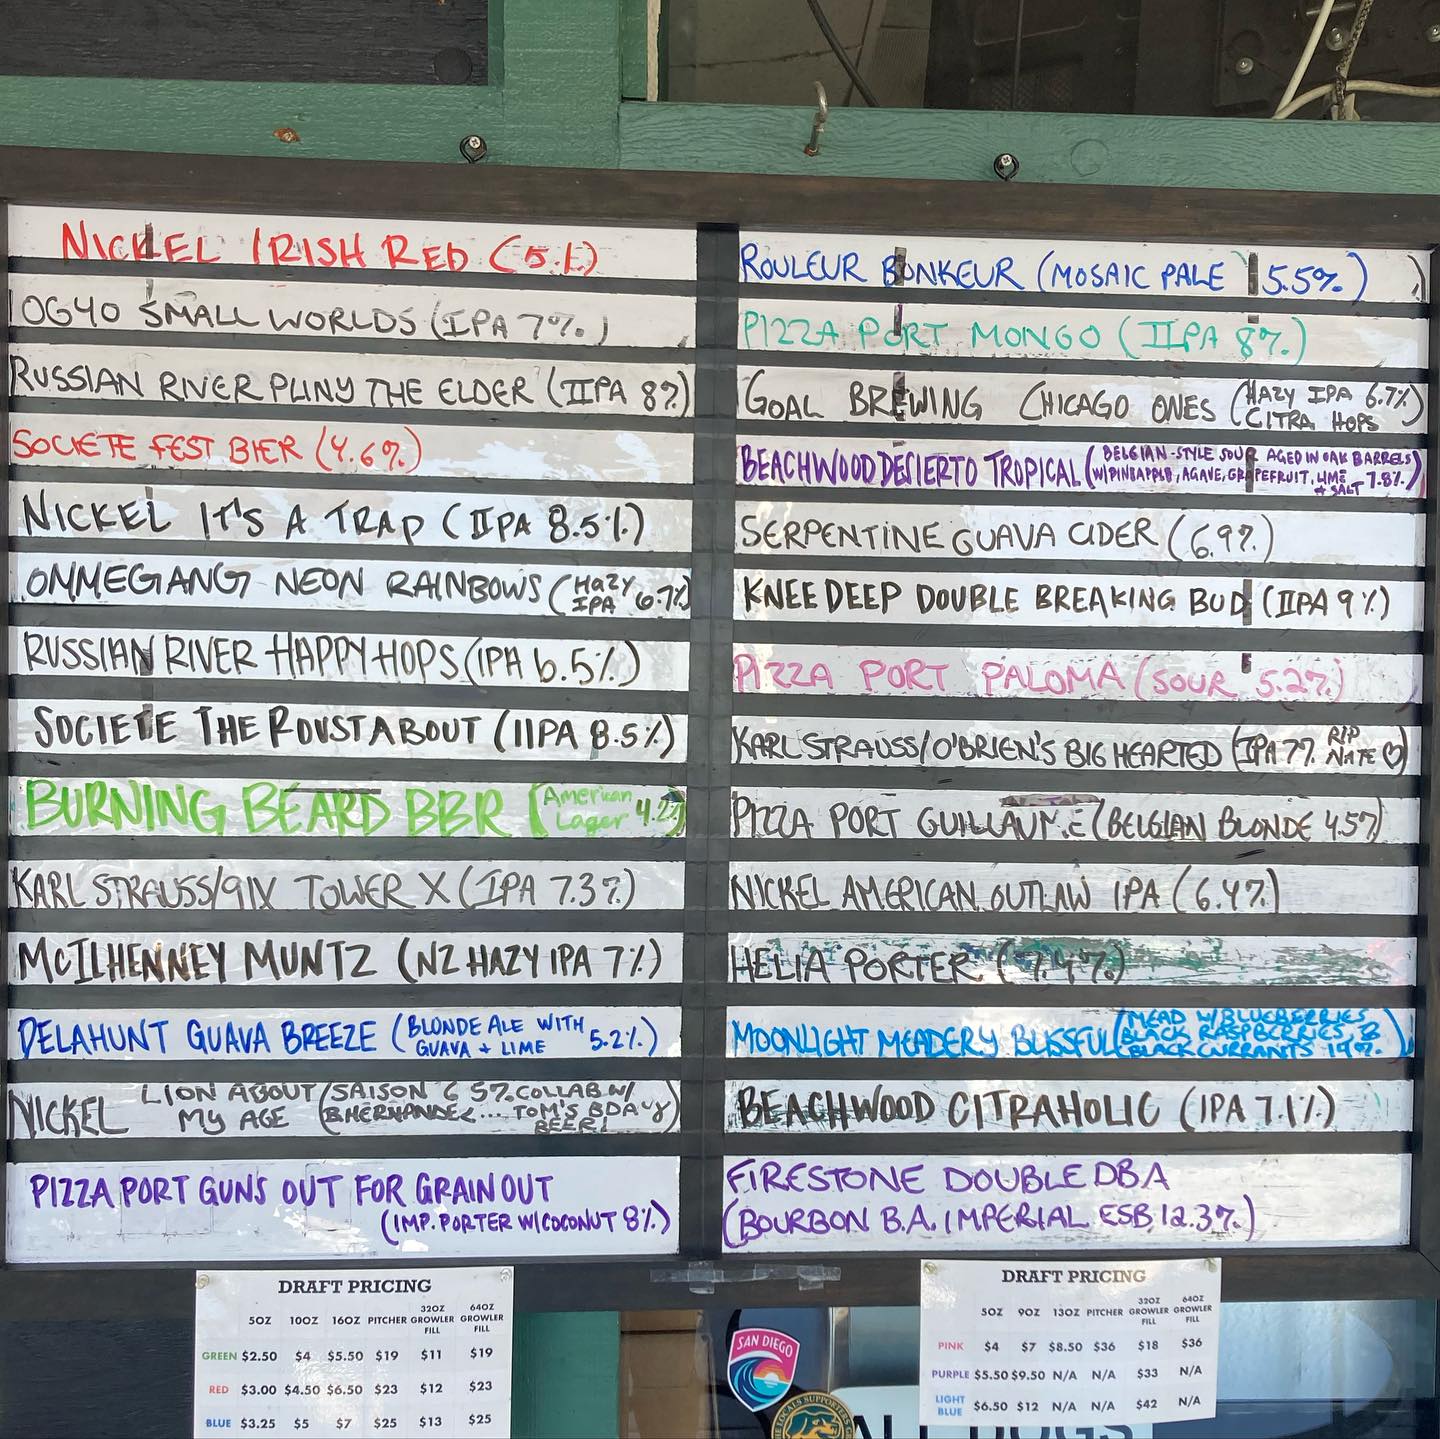 NICKEL IRISH RED (5%)
OG40 SMALL WORLDS (IPA 7%)
RUSSIAN RIVER PLINY THE ELDER (IIPA 8%)
SOCIETE FEST BIER (4.6%)
NICKEL IT'S A TRAP (IIPA 8.5%)
OMMEGANG NEON RAINBOWS (HAZY IPA 6.7%)
RUSSIAN RIVER HAPPY HOPS (IPA 6.5%)
SOCIETE THE ROUSTABOUT (IIPA 8.5%)
BURNING BEARD BBR (American Lager 4.2%)
KARL STRAUSS/91X TOWER X (IPA 7.3%)
McILHENNEY MUNTZ (NZ HAZY IPA 7%)
DELAHUNT GUAVA BREEZE (BLONDE ALE WITH GUAVA + LIME 5.2%)
NICKEL LION ABOUT MY AGE (SAISON 6.5% COLLAB W/ BHERNANDEZ.... TOM'S BDAY BEER!)
PIZZA PORT GUNS OUT FOR GRAIN OUT
(IMP. PORTER W/COCONUT 8%)
ROULEUR BONKEUR (MOSAIC PALE 5.5%)
PIZZA PORT MONGO (IIPA 8%)
GOAL BREWING CHICAGO ONES (HAZY IPA 6.7% CITRA HOPS)
BEACHWOOD DESIERTO TROPICAL (BELGIAN-STYLE SOUR AGED IN OAK BARRELS
W/PINEAPPLE, AGAVE, GRAPEFRUIT, LIME + SALT 7.8%)
SERPENTINE GUAVA CIDER (6.9%)
KNEE DEEP DOUBLE BREAKING BUD (IIPA 9%)
PIZZA PORT PALOMA (SOUR 5.2%)
KARL STRAUSS/O'BRIEN'S BIG HEARTED (IPA 7% RIP NATE ♡)
PIZZA PORT GUILLAUME (BELGIAN BLONDE 4.5%)
NICKEL AMERICAN OUTLAW IPA (6.4%)
HELIA PORTER (7.4%)
MOONLIGHT MEADERY BLISSFUL (MEAD W/BLUEBERRIES
BLACK RASPBERRIES &
BLACKCURRANTS 14%)
BEACHWOOD CITRAHOLIC (IPA 7.1%)
FIRESTONE DOUBLE DBA
(BOURBON B.A. IMPERIAL ESB 12.3%)
DRAFT PRICING
5OZ 10OZ 16OZ PITCHER 32OZ GROWLER FILL 64OZ GROWLER FILL
GREEN $2.50 $4 $5.50 $19 $11 $19
RED $3.00 $4.50 $6.50 $23 $12 $23
BLUE $3.25 $5 $7 $25 $13 $25
DRAFT PRICING
5OZ 9OZ 13OZ PITCHER 32OZ GROWLER FILL 64OZ GROWLER FILL
PINK $4 $7 $8.50 $36 $18 $36
PURPLE $5.50 $9.50 N/A N/A $33 N/A
LIGHT BLUE $6.50 $12 N/A N/A $42 N/A
SAN DIEGO
THE LOCALS SUPPORTERS